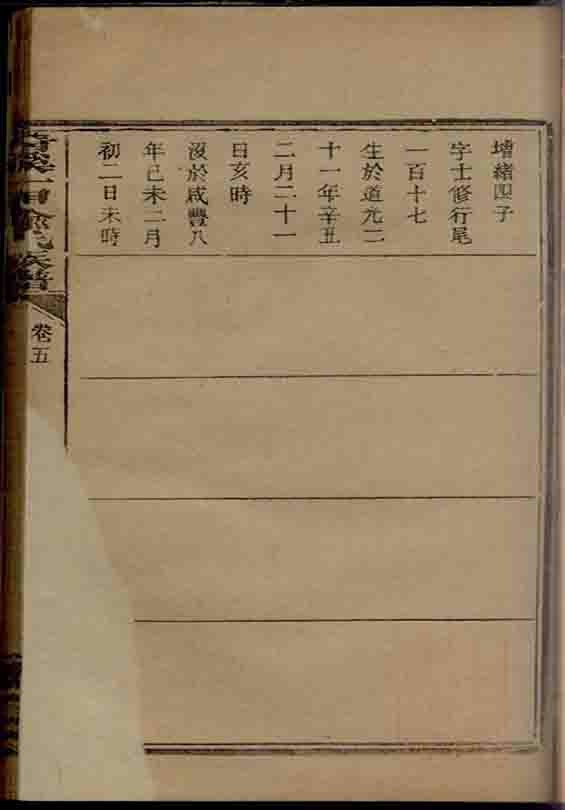 增緒四子
字士修行尾
一百十七
生於道光二
十一年辛丑
二月二十一
日亥時
沒於咸豐八
年己未二月
初二日未時
氏族譜
卷五